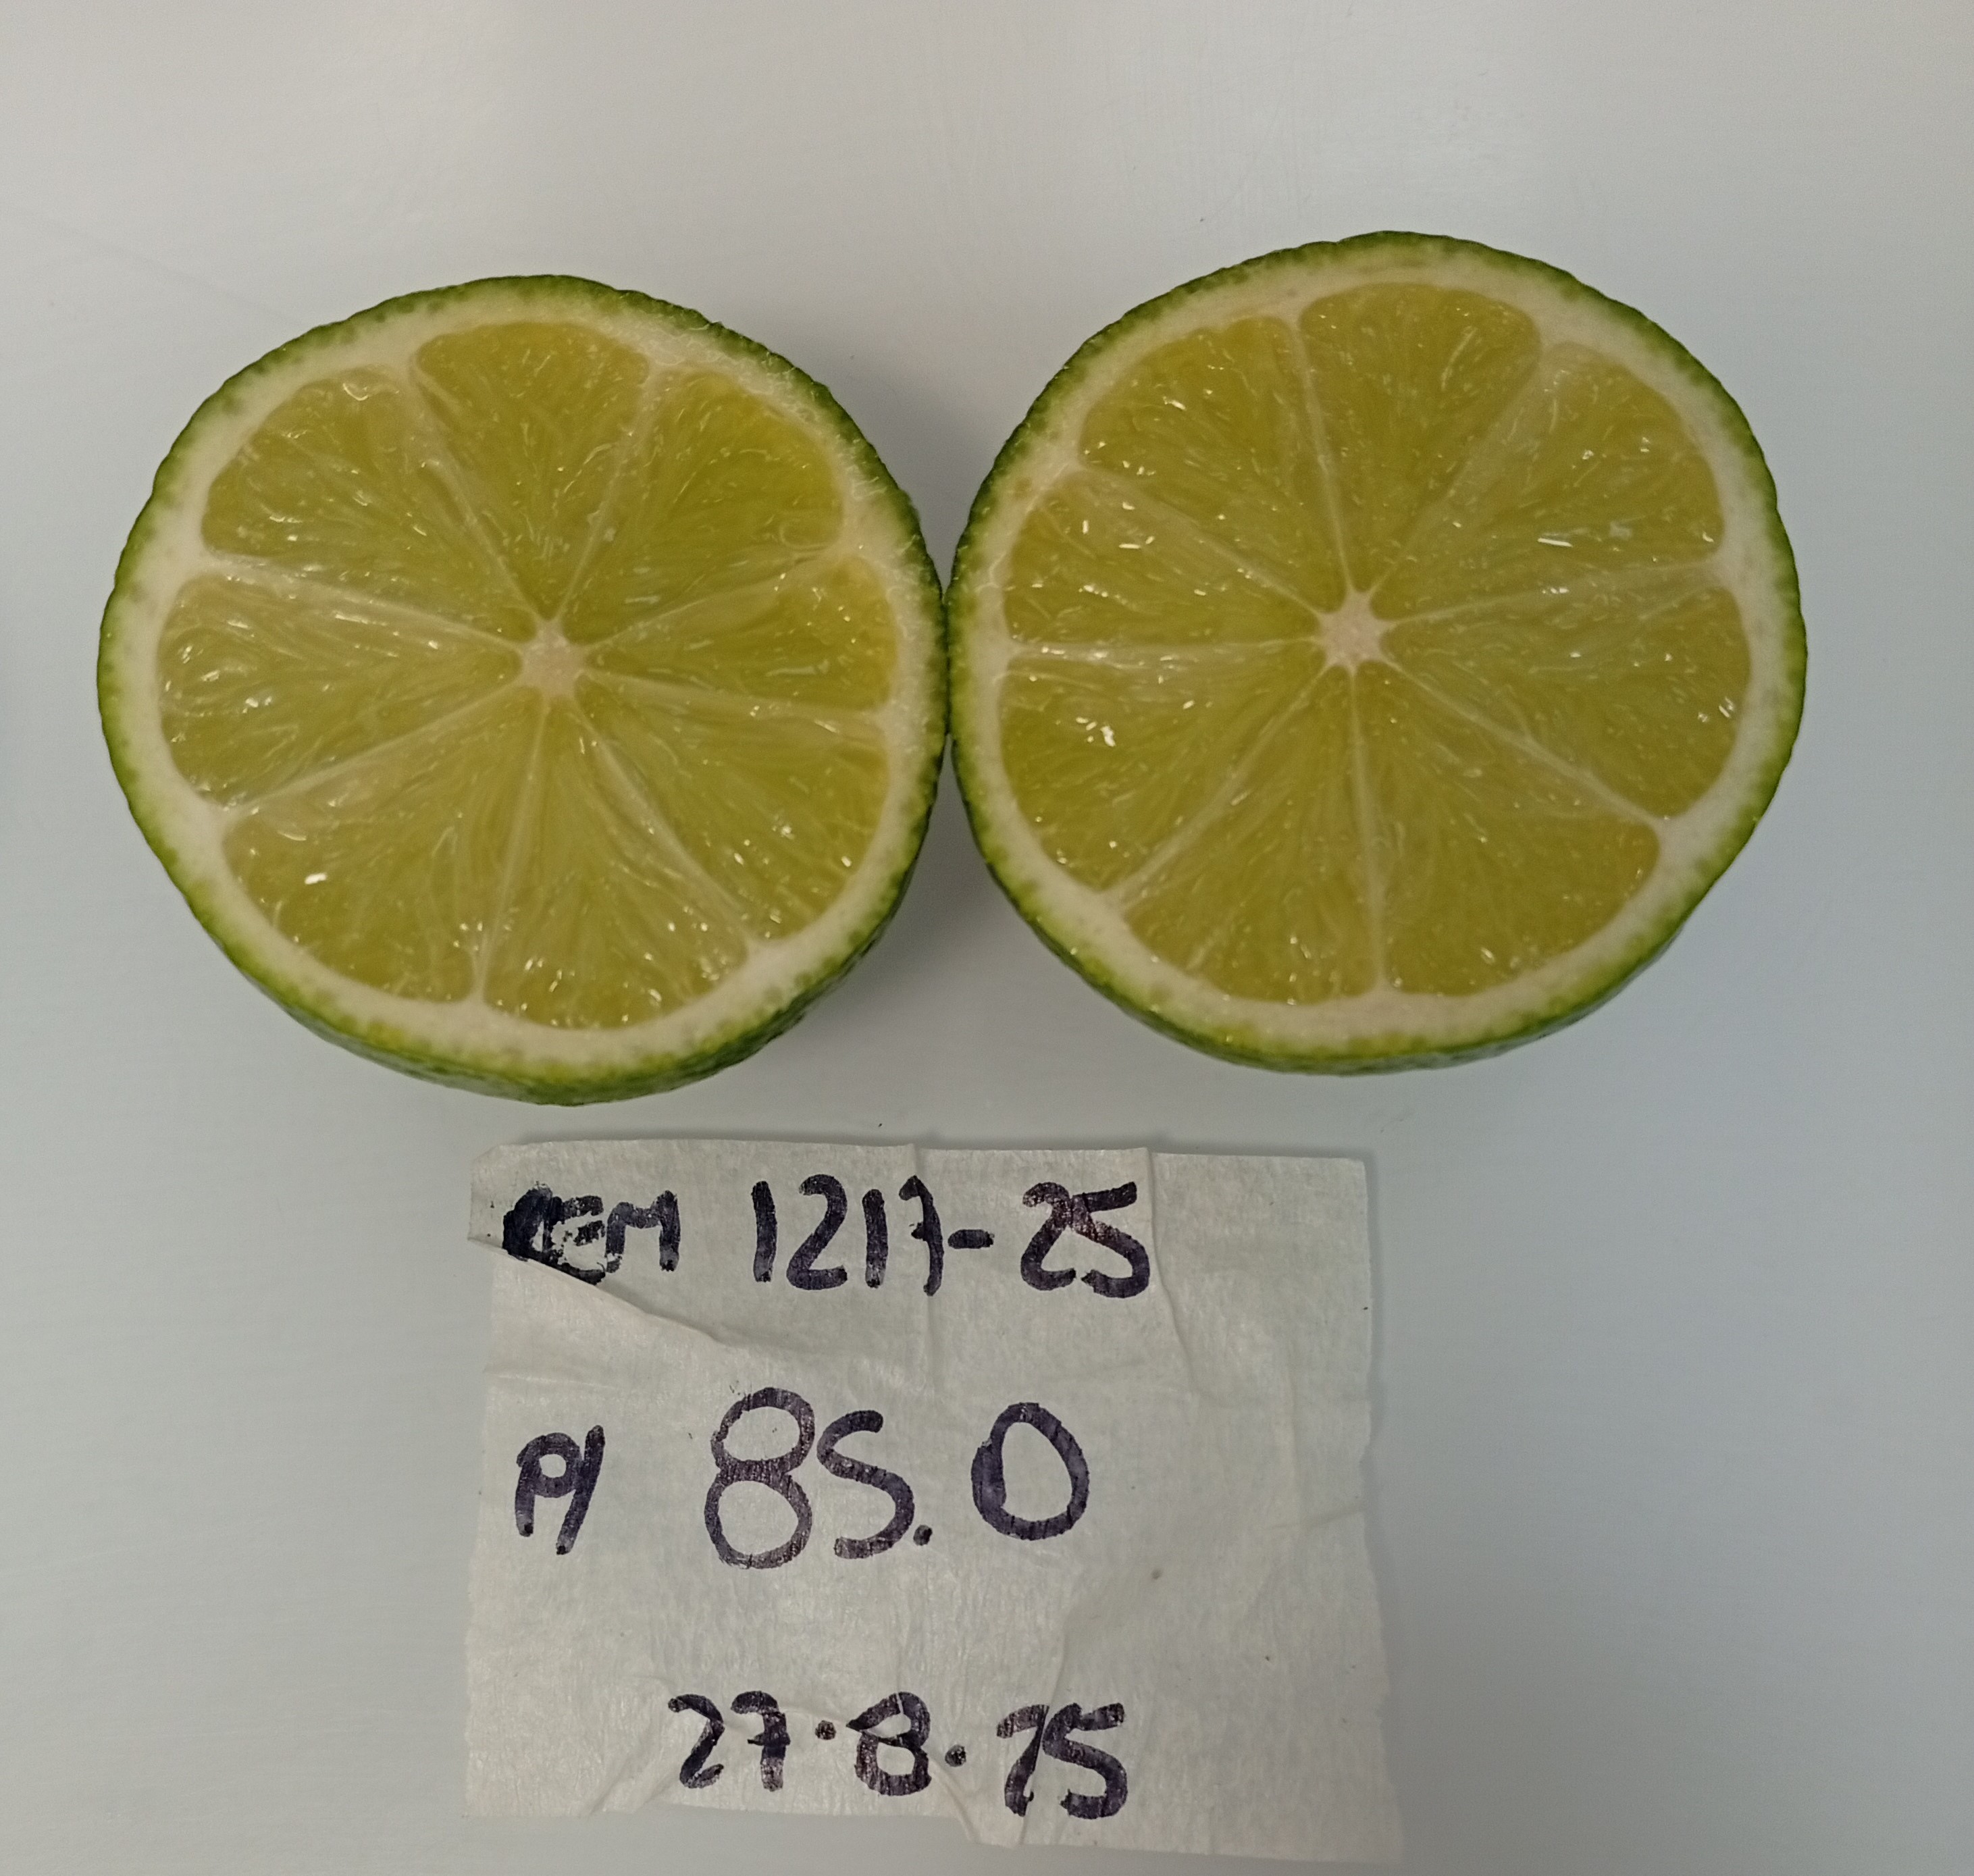 CEM 1217-25
P1 85.0
27.8.25